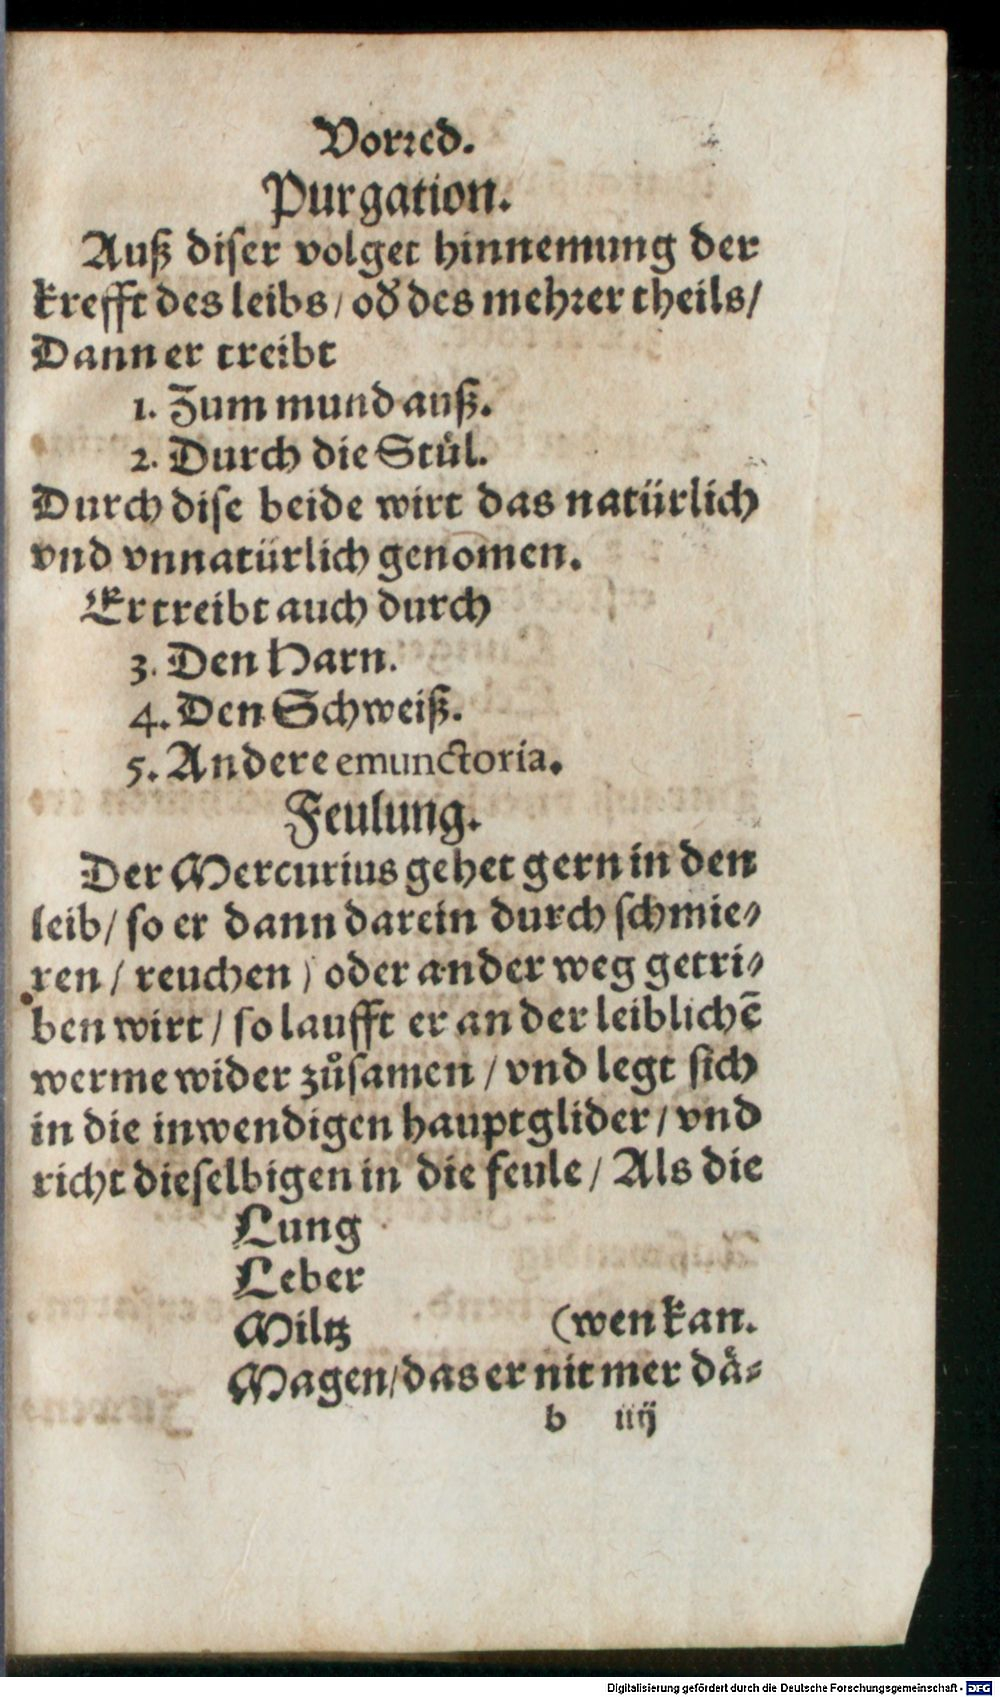 Vorꝛed.
Purgation.
Auß diser volget hinnemung der
krefft des leibs / od̕ des mehꝛer theils /
Dann er treibt
1. Zum mund auß.
2. Durch die Stůl.
Durch dise beide wirt das natürlich
vnd vnnatürlich genomen.
Er treibt auch durch
3. Den Harn.
4. Den Schweiß.
5. Andere emunctoria.
Feulung.
Der Mercurius gehet gern in den
leib / so er dann darein durch schmie⸗
ren / reuchen / oder ander weg getri⸗
ben wirt / so laufft er an der leiblichẽ
werme wider zůsamen / vnd legt sich
in die inwendigen hauptglider / vnd
richt dieselbigen in die feule / Als die
Lung
Leber
Miltz (wen kan.
Magen / das er nit mer då⸗
b iiij
Digitalisierung gefördert durch die Deutsche Forschungsgemeinschaft - DFG